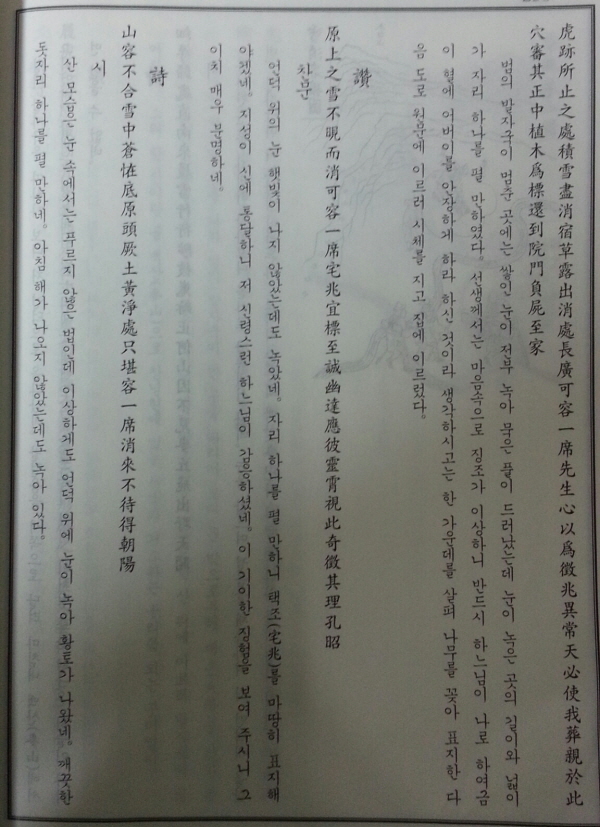 虎跡所止之處積雪盡消宿草露出消處長廣可容一席先生心以爲徵兆異常天必使我葬親於此
穴審其正中植木爲標還到院門負屍至家
범의 발자국이 멈춘 곳에는 쌓인 눈이 전부 녹아 묵은 풀이 드러났는데 눈이 녹은 곳의 길이와 넓이
가 자리 하나를 펼 만하였다. 선생께서는 마음속으로 징조가 이상하니 반드시 하느님이 나로 하여금
이 혈에 어버이를 안장하게 하라 하신 것이라 생각하시고는 한 가운데를 살펴 나무를 꽂아 표지한 다
음 도로 원문에 이르러 시체를 지고 집에 이르렀다.
讚
原上之雪不晛而消可容一席宅兆宜標至誠幽達應彼靈霄視此奇徵其理孔昭
찬문
언덕 위의 눈 햇빛이 나지 않았는데도 녹았네. 자리 하나를 펼 만하니 택조(宅兆)를 마땅히 표지해
야겠네. 지성이 신에 통달하니 저 신령스런 하느님이 감응하셨네. 이 기이한 징험을 보여 주시니 그
이치 매우 분명하네.
詩
山容不合雪中蒼恠底原頭厥土黃淨處只堪容一席消來不待得朝陽
시
산 모습은 눈 속에서는 푸르지 않은 법인데 이상하게도 언덕 위에 눈이 녹아 황토가 나왔네. 깨끗한
돗자리 하나를 펼 만하네. 아침 해가 나오지 않았는데도 녹아 있다.